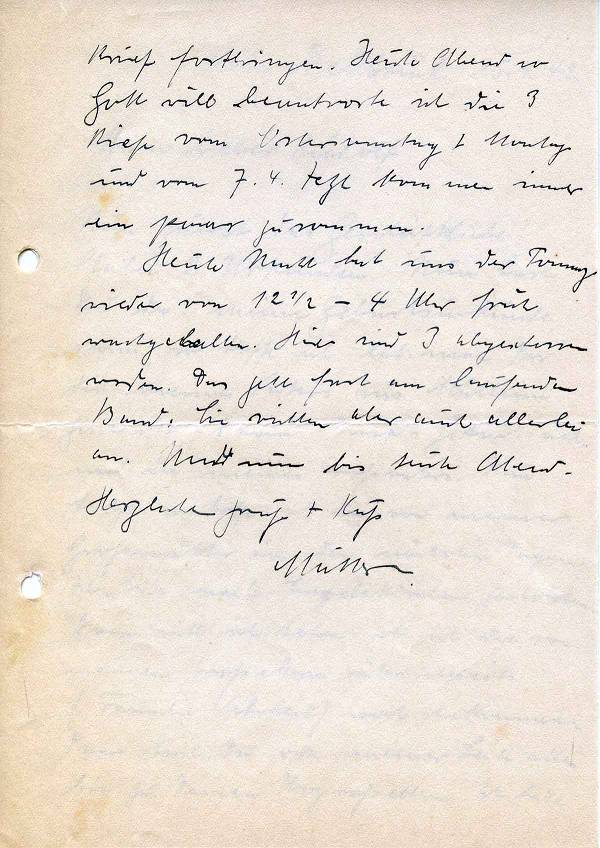 Brief fortbringen. Heute Abend so
Gott will beantworte ich die 3
Briefe vom Ostersonntag + Montag
und vom 7.4. Jetzt kommen immer
ein paar zusammen.
Heute Nacht hat uns der Tommy
wieder von 12 1/2 – 4 Uhr früh
wachgehalten. Hier sind 3 abgeschossen
worden. Das geht fast am laufenden
Band. Sie richten aber auch allerlei
an. nun bis heute Abend.
Herzliche Grüße + Kuß
Mutter.